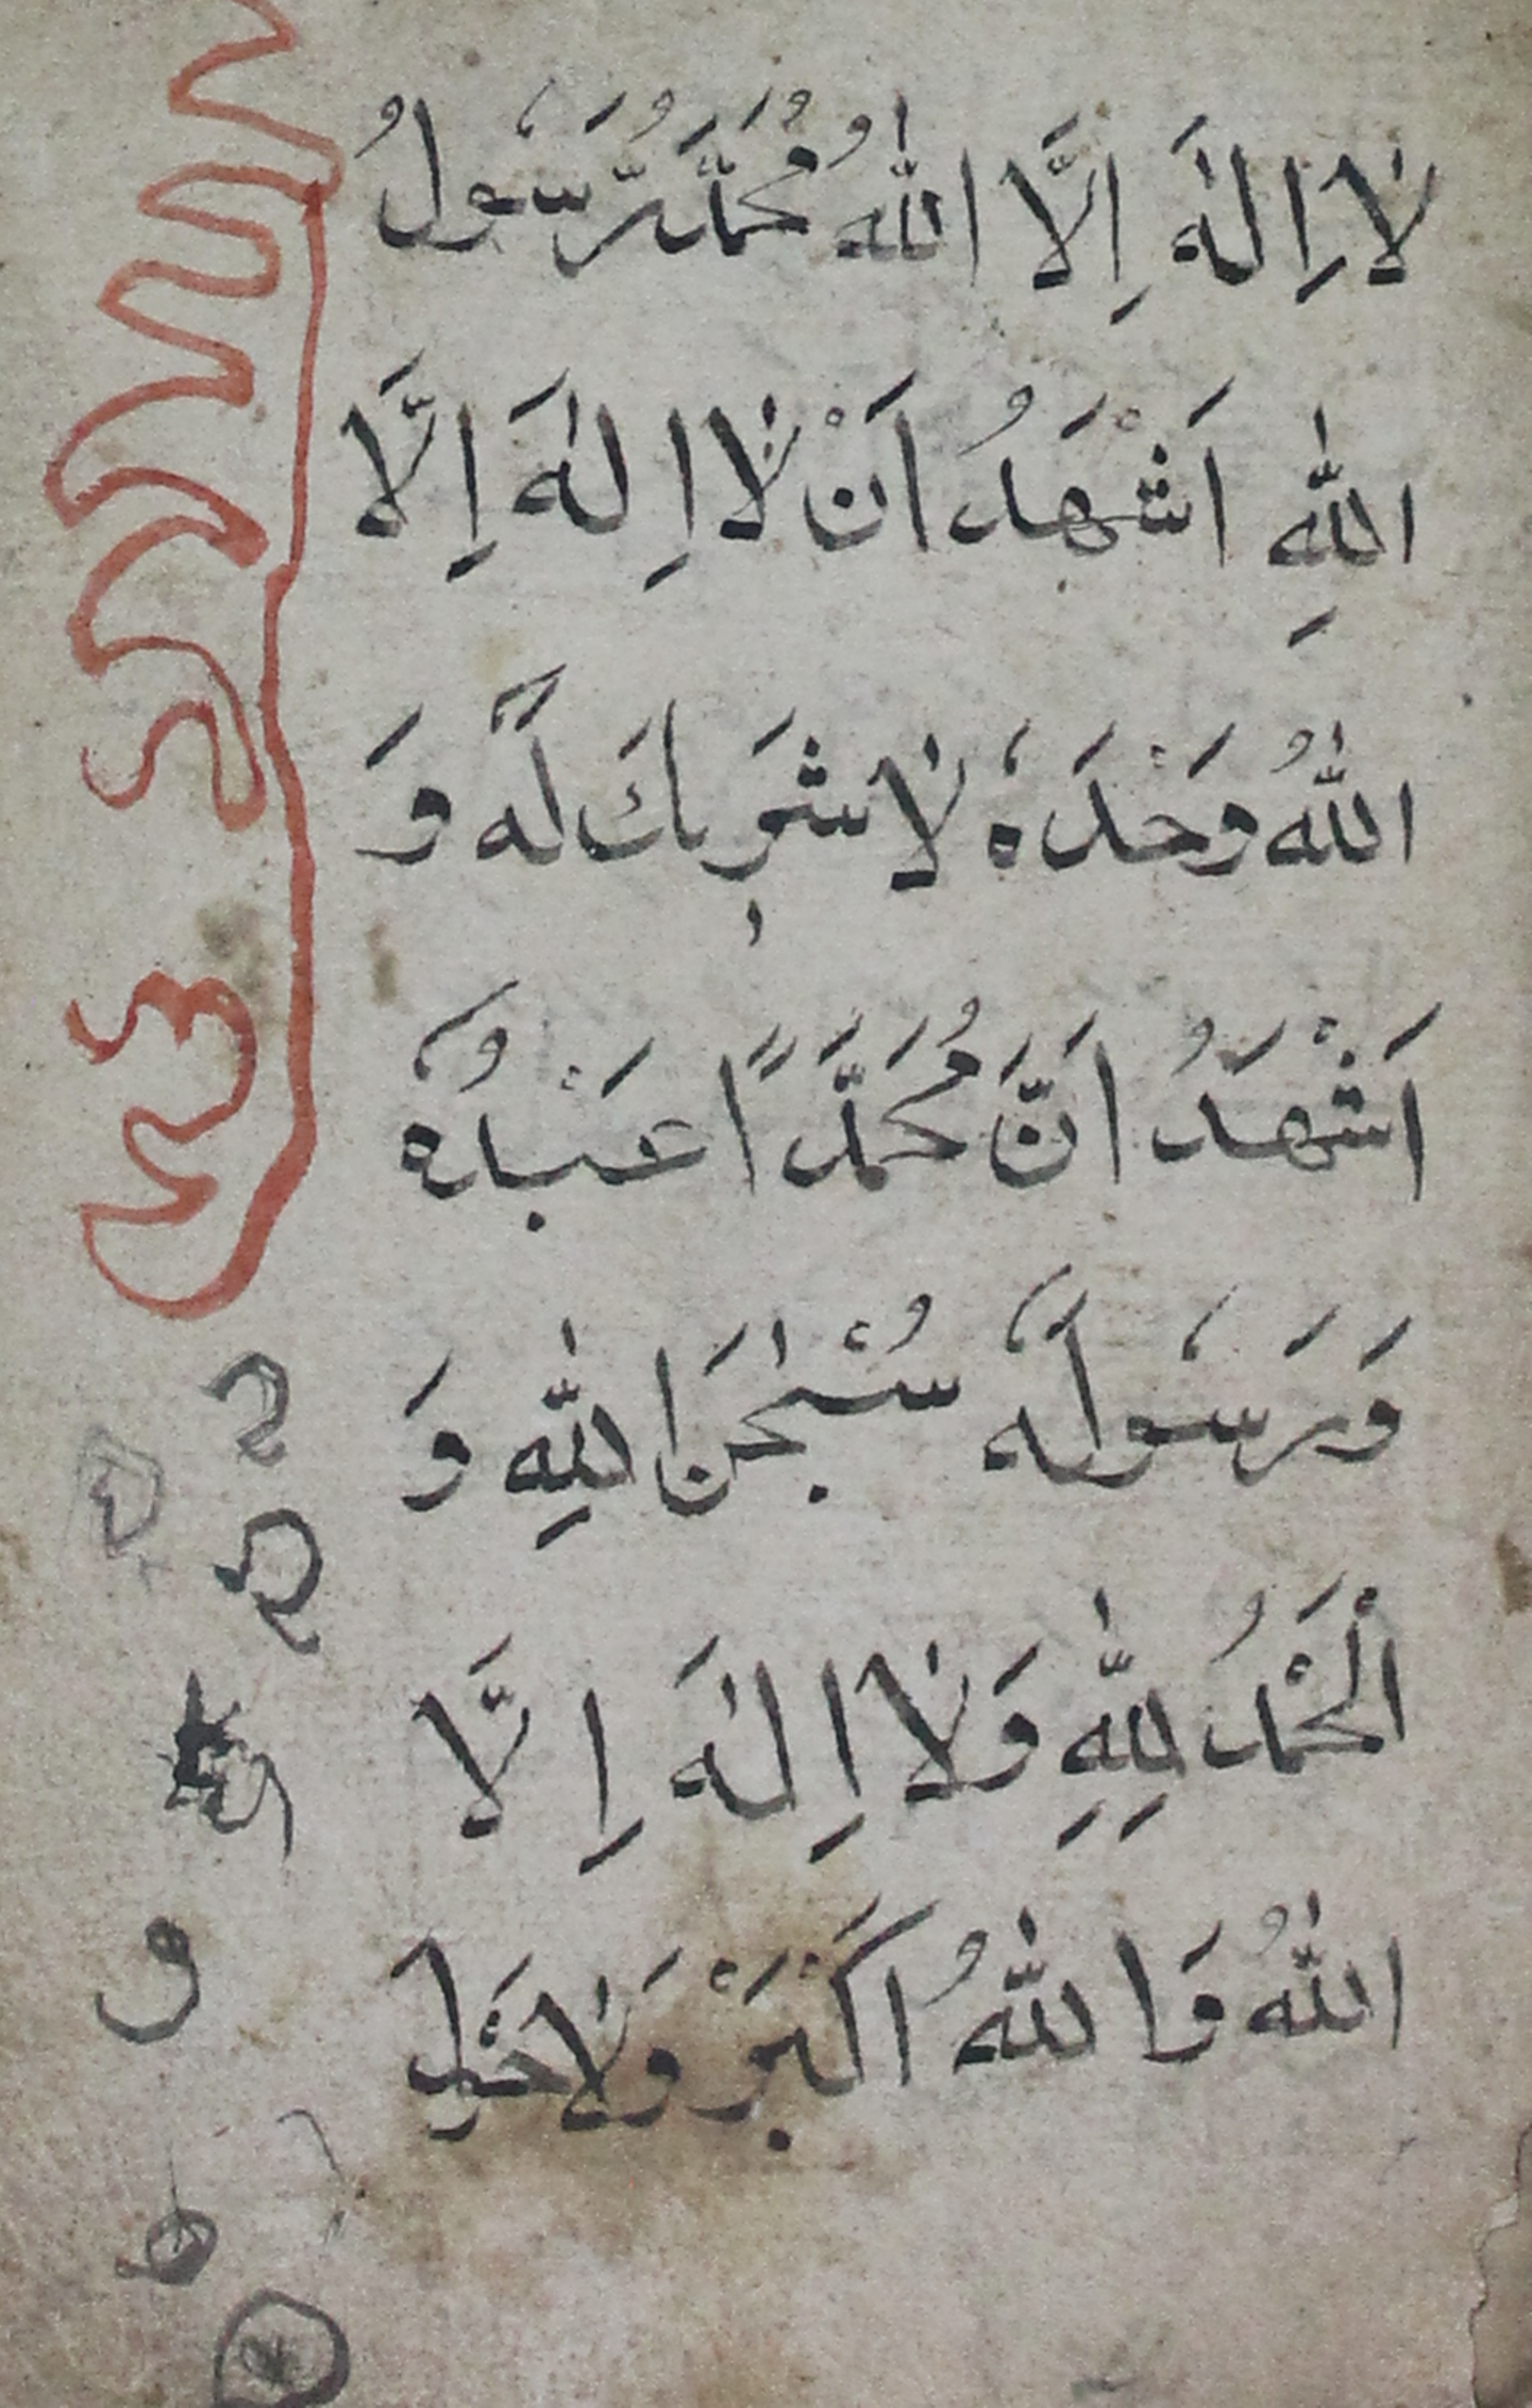 لَا اِلٰهَ اِلَّا اللّٰهُ مُحَمَّدٌ رَّسُولُ
اللّٰهِ اَشْهَدُ اَنْ لَا اِلٰهَ اِلَّا
اللّٰهُ وَحْدَهٗ لَا شَرِيكَ لَهٗ وَ
اَشْهَدُ اَنَّ مُحَمَّدًا عَبْدُهٗ
وَرَسُولُهٗ سُبْحٰنَ اللّٰهِ وَ
اَلْحَمْدُ لِلّٰهِ وَلَا اِلٰهَ اِلَّا
اللّٰهُ وَاللّٰهُ اَكْبَرْ وَلَا حَوْلَ